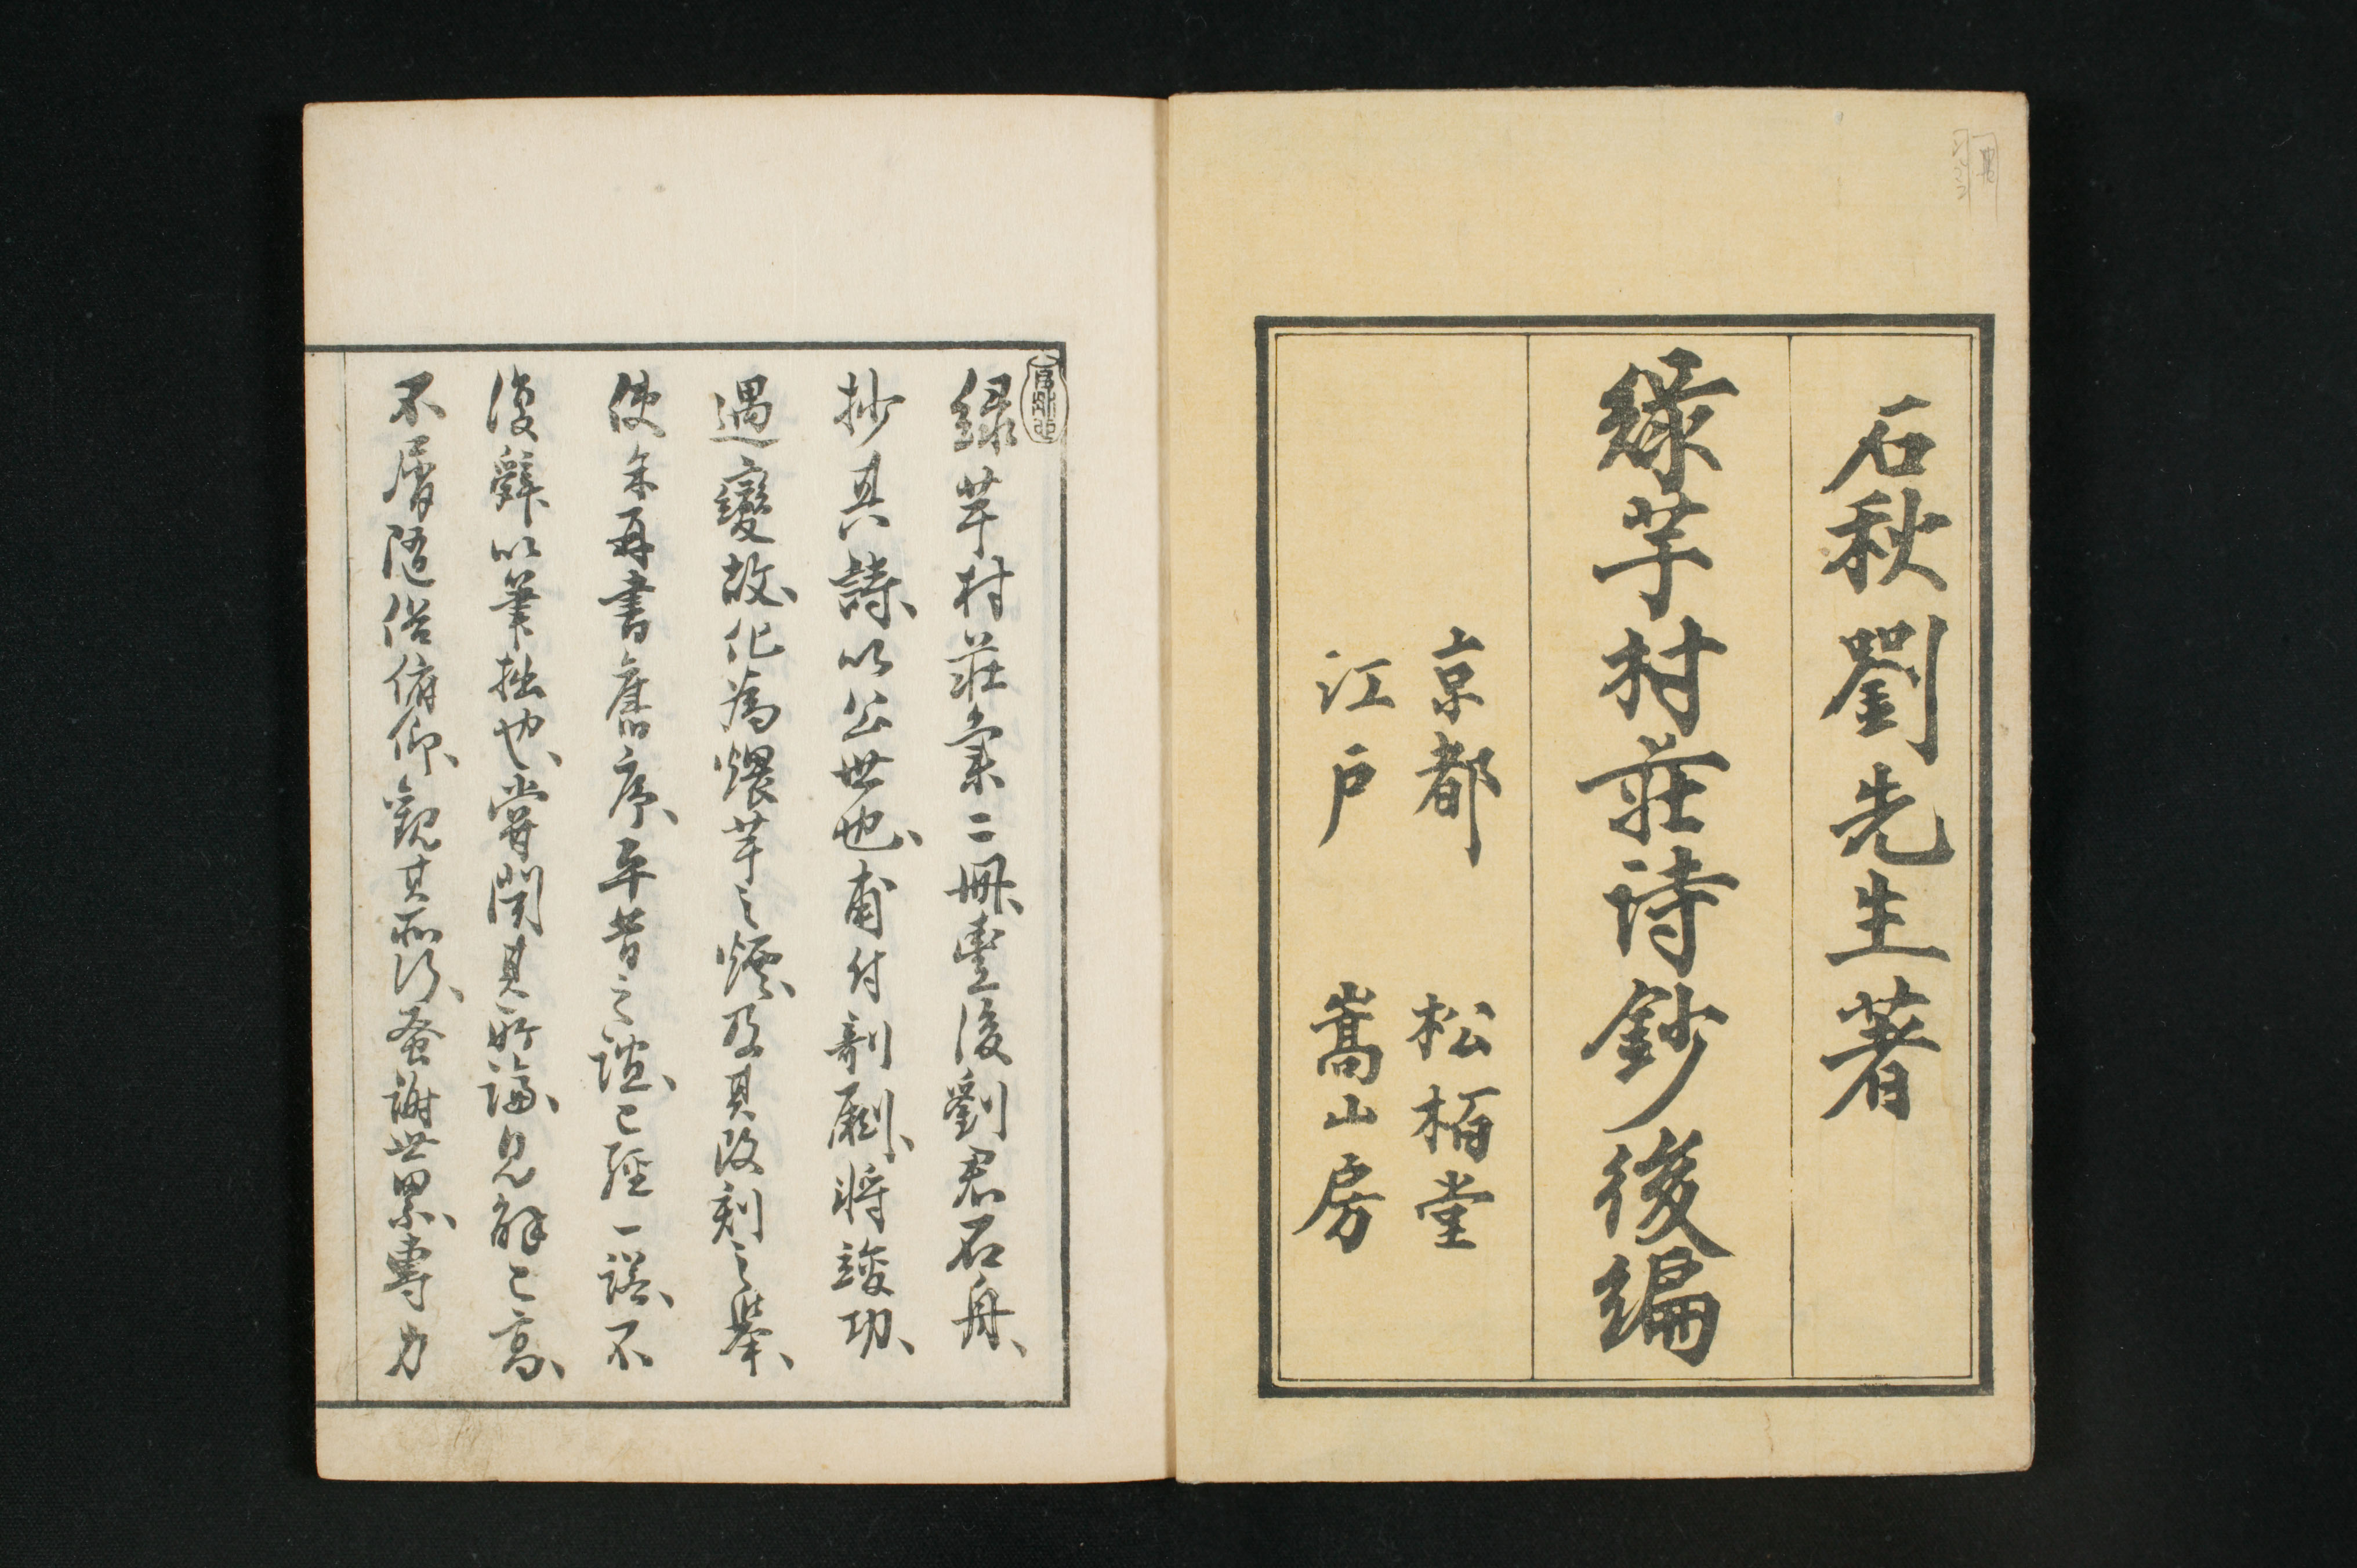 石秋劉先生著
綠芋村莊詩鈔後編
京都 松栢堂
江戶 嵩山房
綠芋村莊稾二冊、豊後劉君石舟、
抄其詩、以公世也、甫付剞劂、將竣功、
遇變故、化為煨芋之煙、及其改刻之舉、
使余再書舊序、平昔之誼、已経一諾、不
復辭以筆拙也、嘗聞其所論、見解已高、
不屑隨俗俯仰、観其所行、蚤謝世累、專力